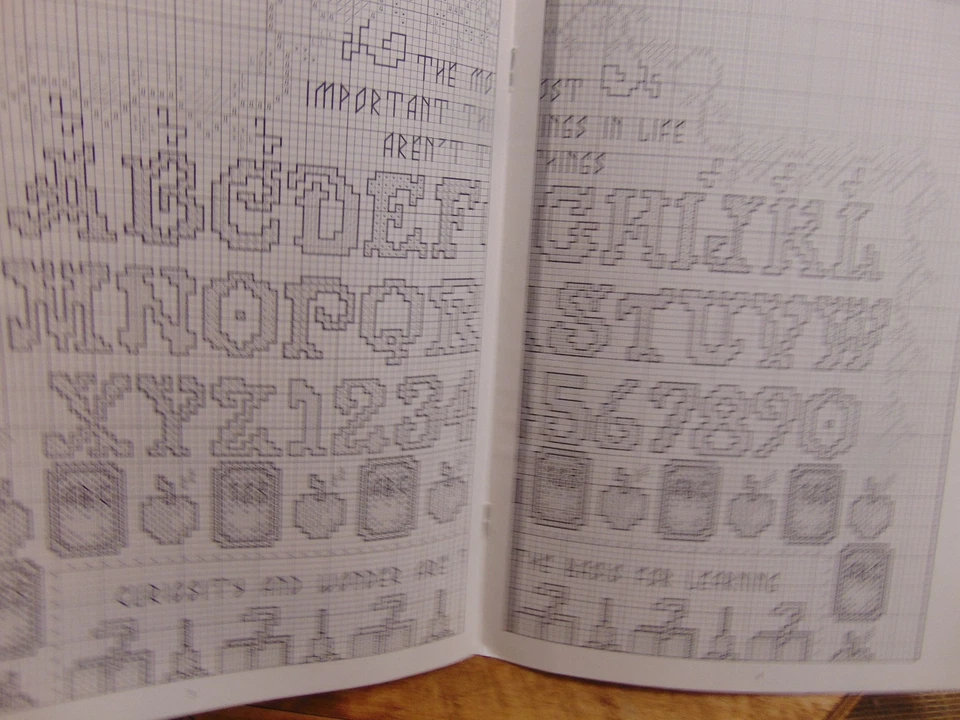 THE MOST
IMPORTANT THINGS IN LIFE
AREN'T THINGS
ABCDEFGHIJKL
MNOPQRSTUVW
XYZ1234567890
CURIOSITY AND WONDER ARE THE BASIS FOR LEARNING